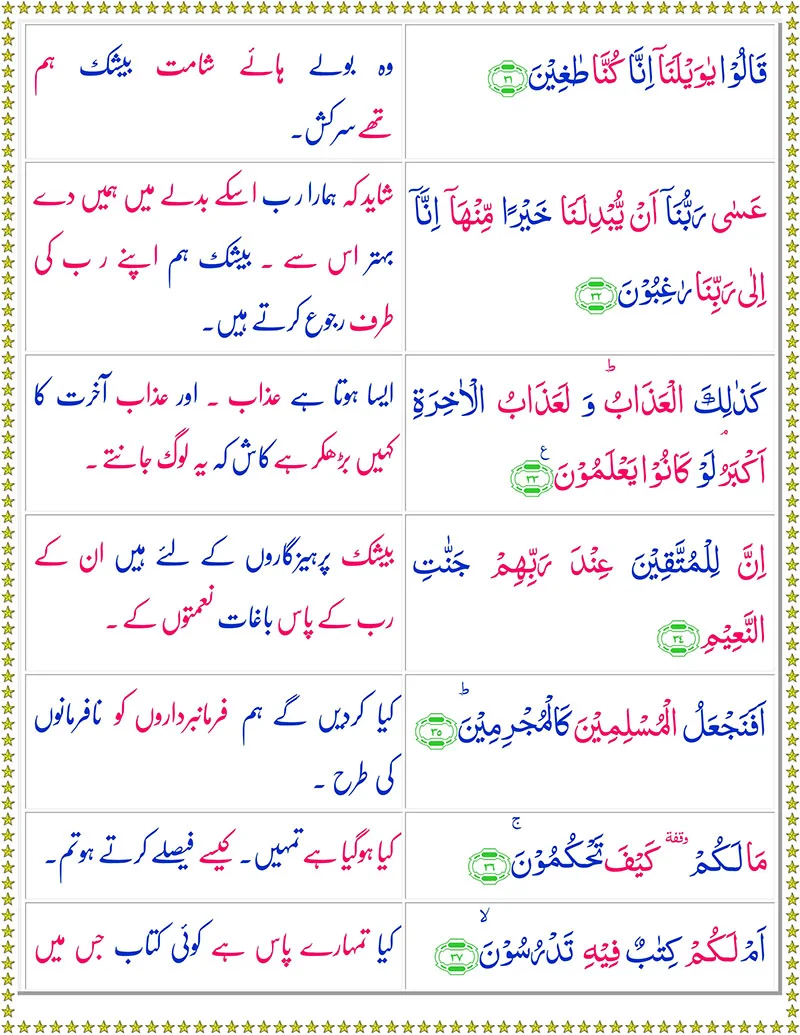 قَالُوْا يٰوَيْلَنَاۤ اِنَّا كُنَّا طٰغِيْنَ ﴿٣١﴾
وہ بولے ہائے شامت بیشک ہم
تھے سرکش۔
عَسٰى رَبُّنَاۤ اَنْ يُّبْدِلَنَا خَيْرًا مِّنْهَاۤ اِنَّاۤ
اِلٰى رَبِّنَا رٰغِبُوْنَ ﴿٣٢﴾
شاید کہ ہمارا رب اسکے بدلے میں ہمیں دے
بہتر اس سے ۔ بیشک ہم اپنے رب کی
طرف رجوع کرتے ہیں۔
كَذٰلِكَ الْعَذَابُ ؕ وَ لَعَذَابُ الْاٰخِرَةِ
اَكْبَرُ ۘ لَوْ كَانُوْا يَعْلَمُوْنَ ﴿٣٣﴾ ع
ایسا ہوتا ہے عذاب ۔ اور عذاب آخرت کا
کہیں بڑھکر ہے کاش کہ یہ لوگ جانتے ۔
اِنَّ لِلْمُتَّقِيْنَ عِنْدَ رَبِّهِمْ جَنّٰتِ
النَّعِيْمِ ﴿٣٤﴾
بیشک پرہیزگاروں کے لئے ہیں ان کے
رب کے پاس باغات نعمتوں کے ۔
اَفَنَجْعَلُ الْمُسْلِمِيْنَ كَالْمُجْرِمِيْنَ ؕ ﴿٣٥﴾
کیا کردیں گے ہم فرمانبرداروں کو نافرمانوں
کی طرح ۔
مَا لَكُمْ وقفة كَيْفَ تَحْكُمُوْنَ ۚ ﴿٣٦﴾
کیا ہوگیا ہے تمہیں۔ کیسے فیصلے کرتے ہو تم۔
اَمْ لَكُمْ كِتٰبٌ فِيْهِ تَدْرُسُوْنَ ۙ ﴿٣٧﴾
کیا تمہارے پاس ہے کوئی کتاب جس میں